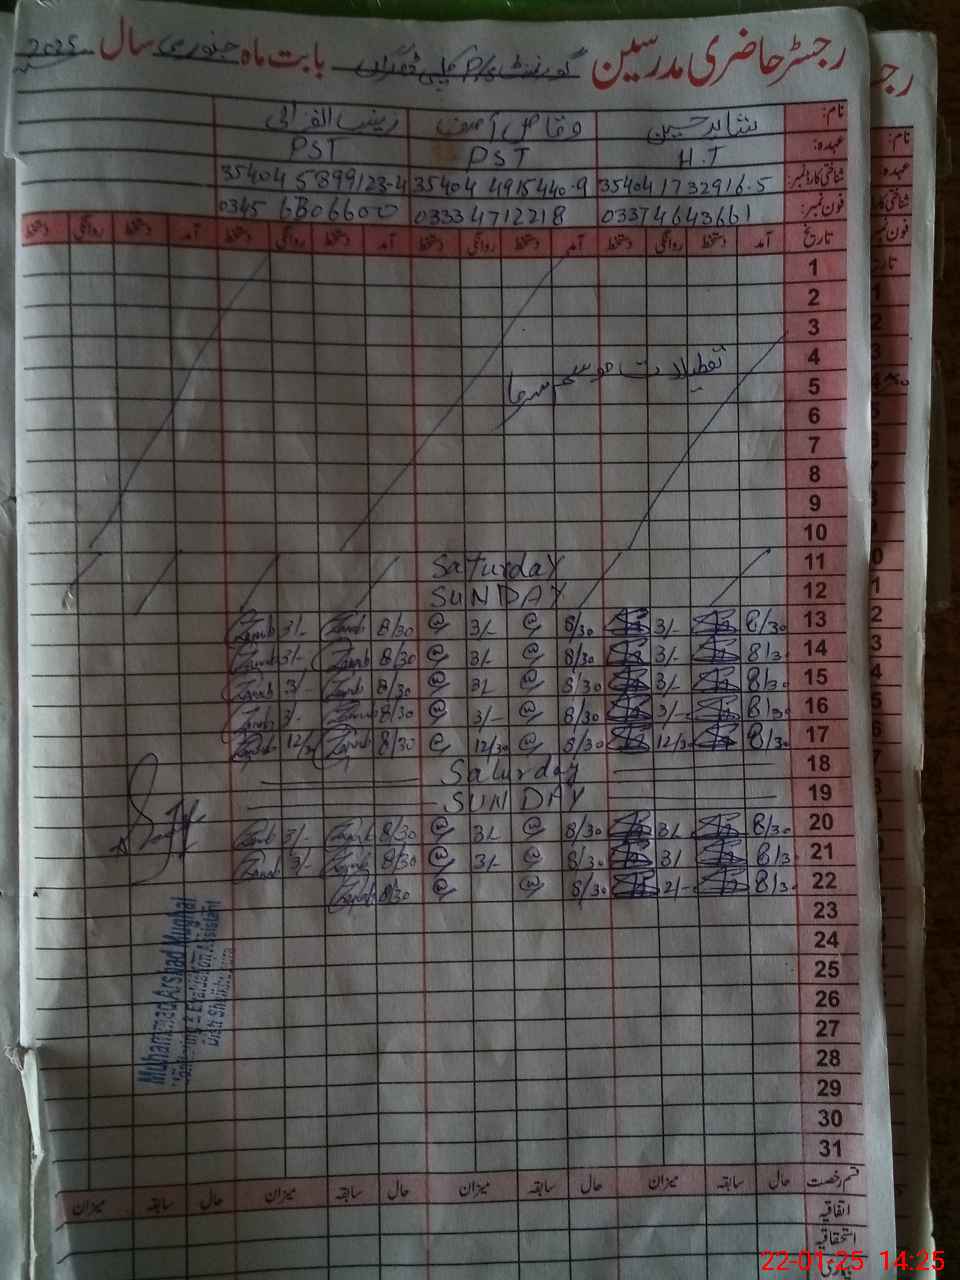 رجسٹر حاضری مدرسین گورنمنٹ P/S بابت ماہ جنوری سال 2025
نام: شاہد حسین وقاص آصف زینب الغزالی
عہدہ: H.T PST PST
شناختی کارڈ نمبر: 35404 1732916-5 35404 4915440-9 35404 5899123-4
فون نمبر: 03374643661 03334712218 0345 6806600
تاریخ آمد دستخط روانگی دستخط آمد دستخط روانگی دستخط آمد دستخط روانگی دستخط آمد دستخط روانگی دستخط
1
2
3
4 تعطیلات موسم سرما
5
6
7
8
9
10
11 Saturday
12 SUNDAY
13 8/30 3/- 8/30 @ 3/- @ 8/30 3/-
14 8/30 3/- 8/30 @ 3/- @ 8/30 3/-
15 8/30 3/- 8/30 @ 3/- @ 8/30 3/-
16 8/30 3/- 8/30 @ 3/- @ 8/30 3/-
17 8/30 12/30 8/30 @ 12/30 @ 8/30 12/30
18 Saturday
19 SUNDAY
20 8/30 3/- 8/30 @ 3/- @ 8/30 3/-
21 8/30 3/- 8/30 @ 3/- @ 8/30 3/-
22 8/30 2/- 8/30 @ @ 8/30
23
24
25
26
27
28
29
30
31
Muhammad Arshad Mughal
Monitoring & Evaluation Assistant
قسم رخصت حال سابقہ میزان حال سابقہ میزان حال سابقہ میزان حال سابقہ میزان
اتفاقیہ
استحقاقیہ
بیماری
22-01-25 14:25